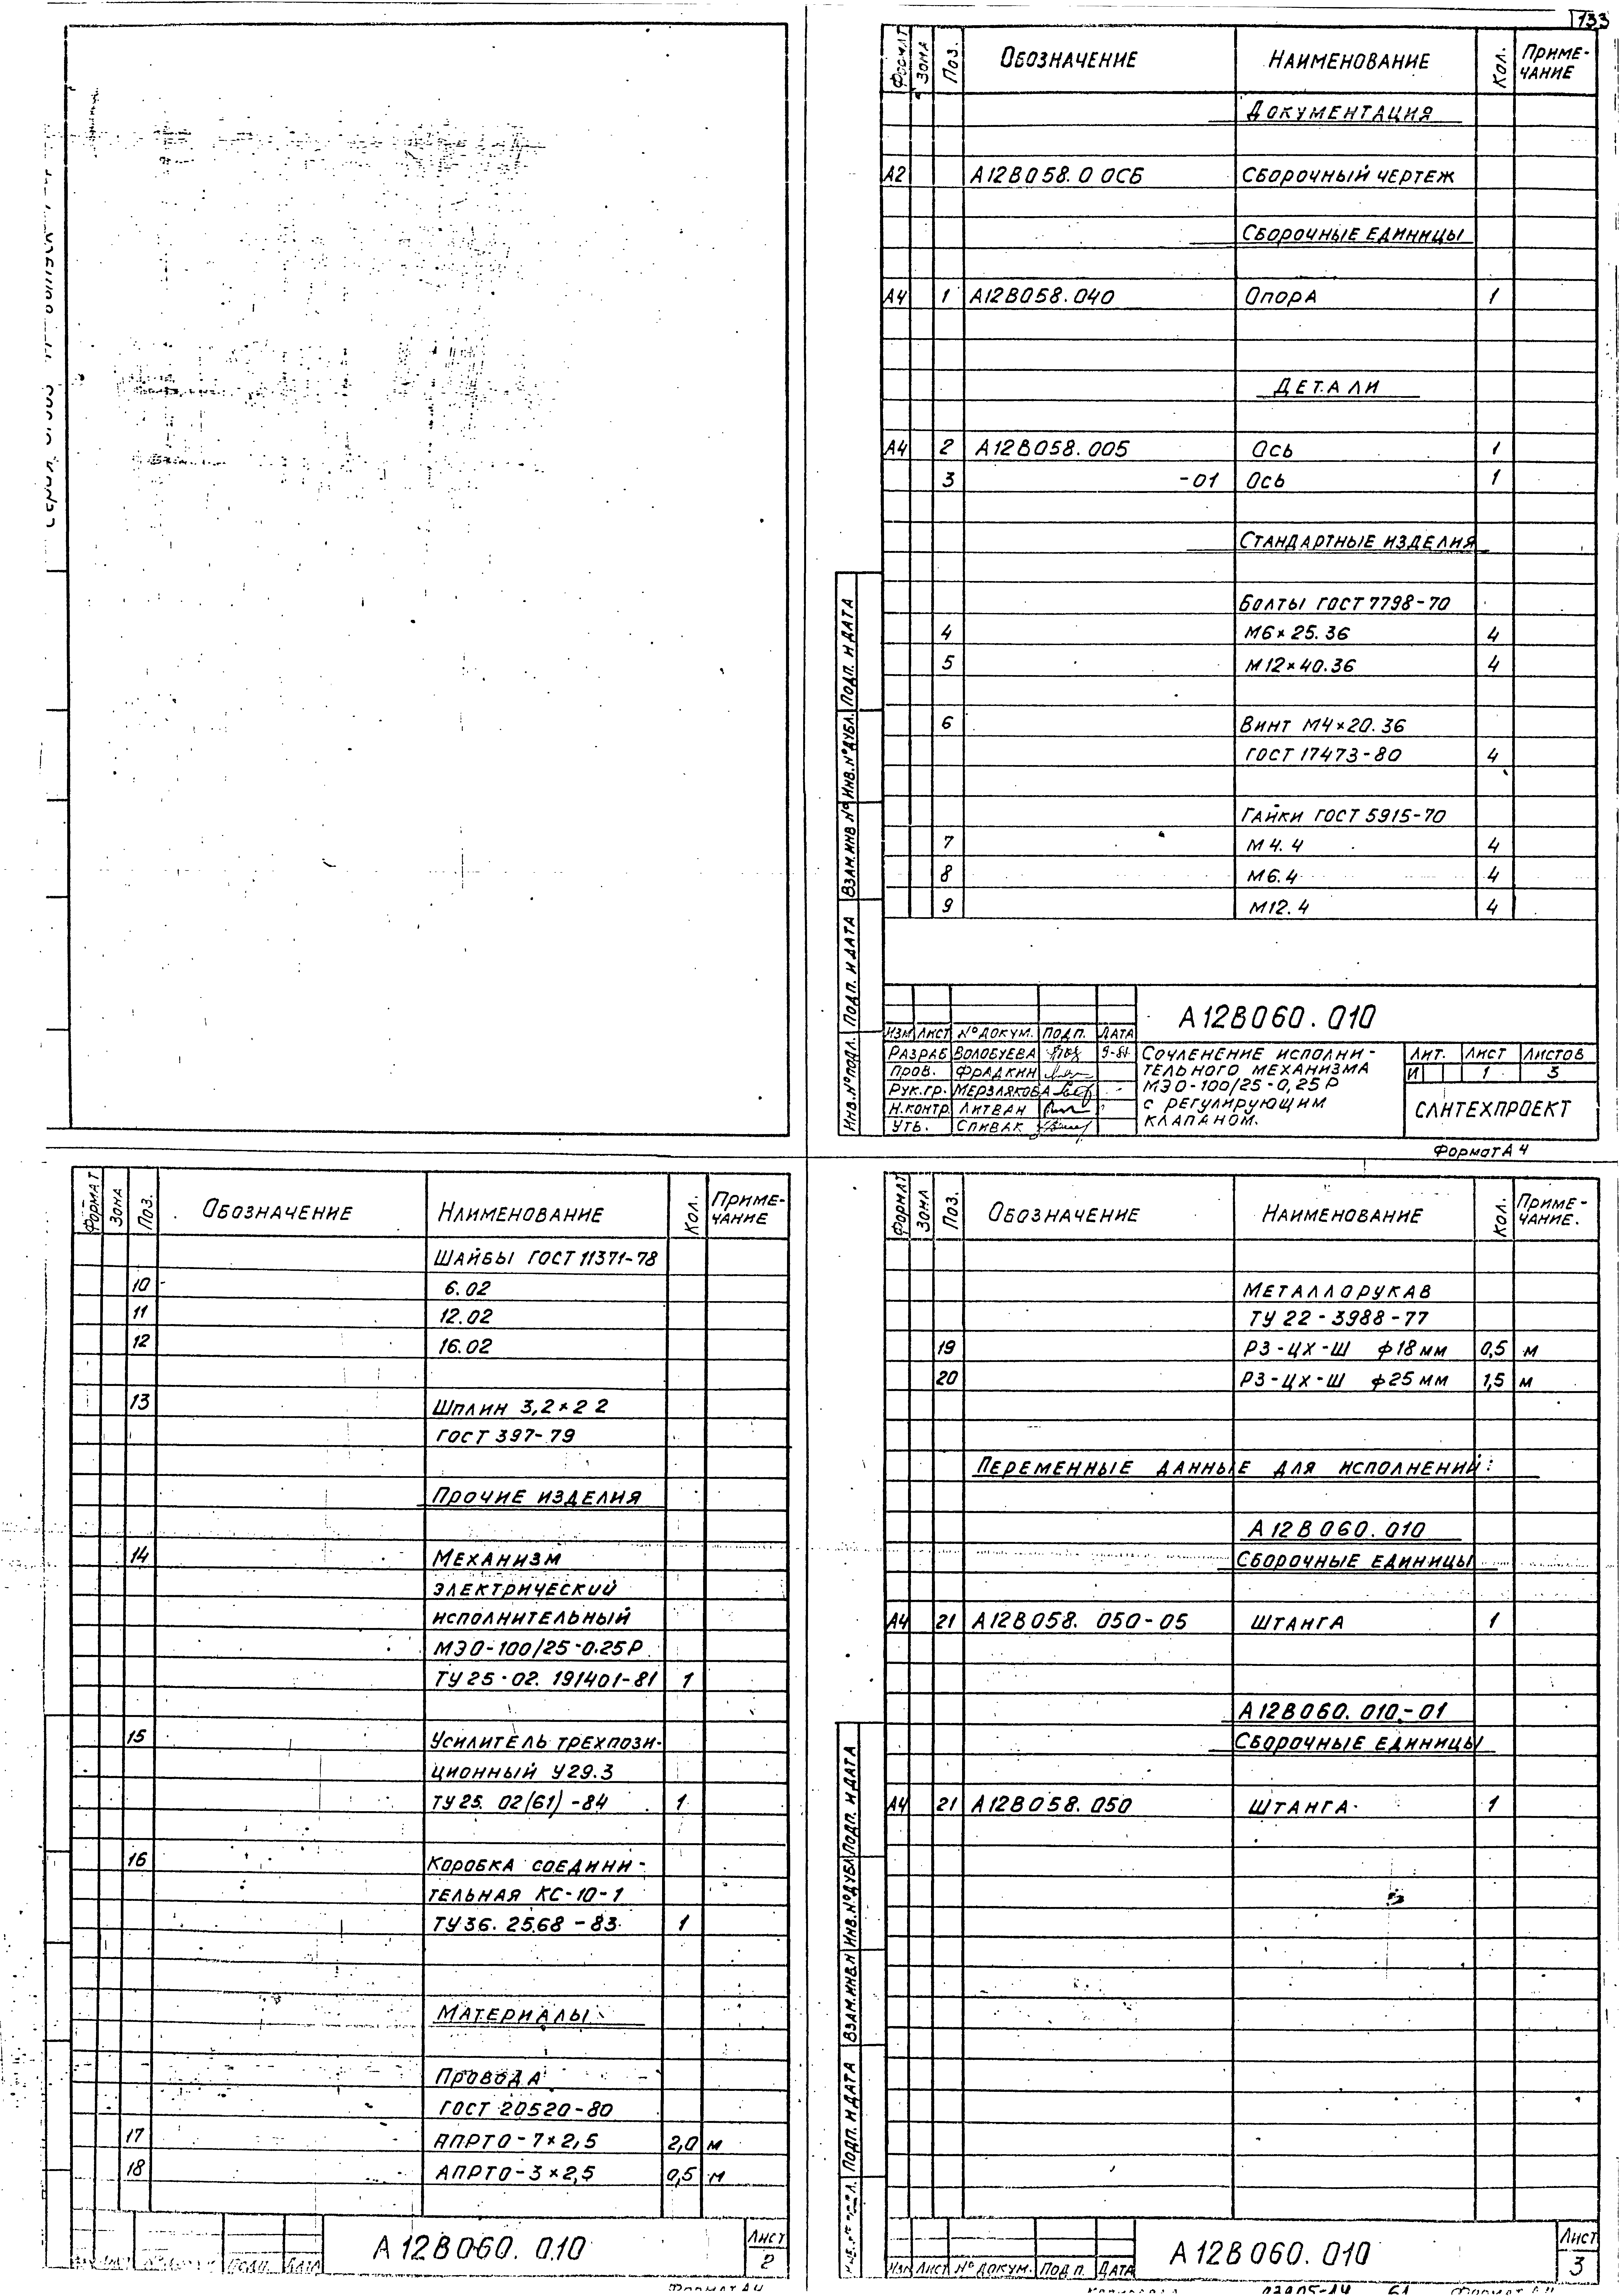 133
Формат Зона Поз. Обозначение Наименование Кол. Приме-
чание
Документация
А2 А12В058.0 0СБ Сборочный чертеж
Сборочные единицы
А4 1 А12В058.040 Опора 1
Детали
А4 2 А12В058.005 Ось 1
3 -01 Ось 1
Стандартные изделия
Болты ГОСТ 7798-70
4 М6×25.36 4
5 М12×40.36 4
6 Винт М4×20.36
ГОСТ 17473-80 4
Гайки ГОСТ 5915-70
7 М4.4 4
8 М6.4 4
9 М12.4 4
Инв.№подл. Подп. и дата Взам.инв № Инв.№дубл. Подп. и дата
А12В060.010
Изм Лист № докум. Подп. Дата
Разраб Волобуева
Пров. Фрадкин
Рук.гр. Мерзлякова
Н.контр. Литван
Утв. Спивак
Сочленение исполни-
тельного механизма
МЭО-100/25-0,25Р
с регулирующим
клапаном.
Лит. Лист Листов
И 1 3
Сантехпроект
Формат А4
Формат Зона Поз. Обозначение Наименование Кол. Приме-
чание
Шайбы ГОСТ 11371-78
10 6.02
11 12.02
12 16.02
13 Шплин 3,2×22
ГОСТ 397-79
Прочие изделия
14 Механизм
электрический
исполнительный
МЭО-100/25-0.25Р
ТУ25-02.191401-81 1
15 Усилитель трехпози-
ционный У29.3
ТУ25.02(61)-84 1
16 Коробка соедини-
тельная КС-10-1
ТУ36.2568-83 1
Материалы
Провода
ГОСТ 20520-80
17 АПРТО-7×2,5 2,0 м
18 АПРТО-3×2,5 0,5 м
А12В060.010
Лист
2
Формат А4
Формат Зона Поз. Обозначение Наименование Кол. Приме-
чание.
Металлорукав
ТУ 22-3988-77
19 РЗ-ЦХ-Ш ф18мм 0,5 м
20 РЗ-ЦХ-Ш ф25мм 1,5 м
Переменные данные для исполнений:
А12В060.010
Сборочные единицы
А4 21 А12В058.050-05 Штанга 1
А12В060.010-01
Сборочные единицы
А4 21 А12В058.050 Штанга 1
Подп. и дата Взам.инв.№ Инв.№дубл Подп. и дата
Изм Лист № докум. Подп. Дата
А12В060.010
Лист
3